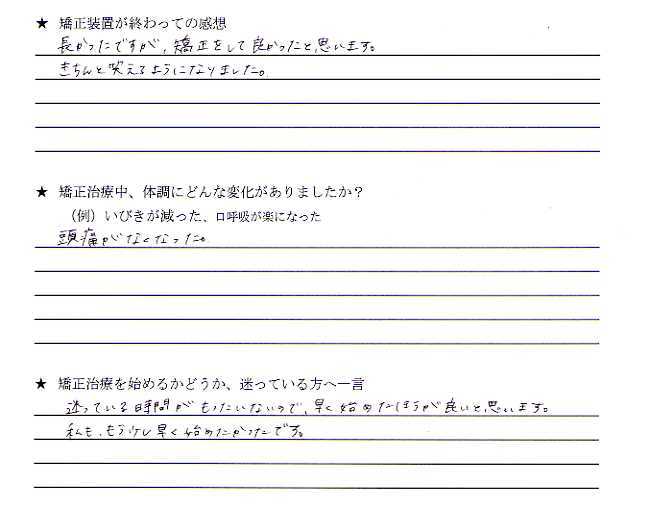 ★ 矯正装置が終わっての感想
長かったですが、矯正をして良かったと思います。
きちんと笑えるようになりました。
★ 矯正治療中、体調にどんな変化がありましたか？
（例）いびきが減った、口呼吸が楽になった
頭痛がなくなった。
★ 矯正治療を始めるかどうか、迷っている方へ一言
迷っている時間がもったいないので、早く始めたほうが良いと思います。
私も、もう少し早く始めたかったです。